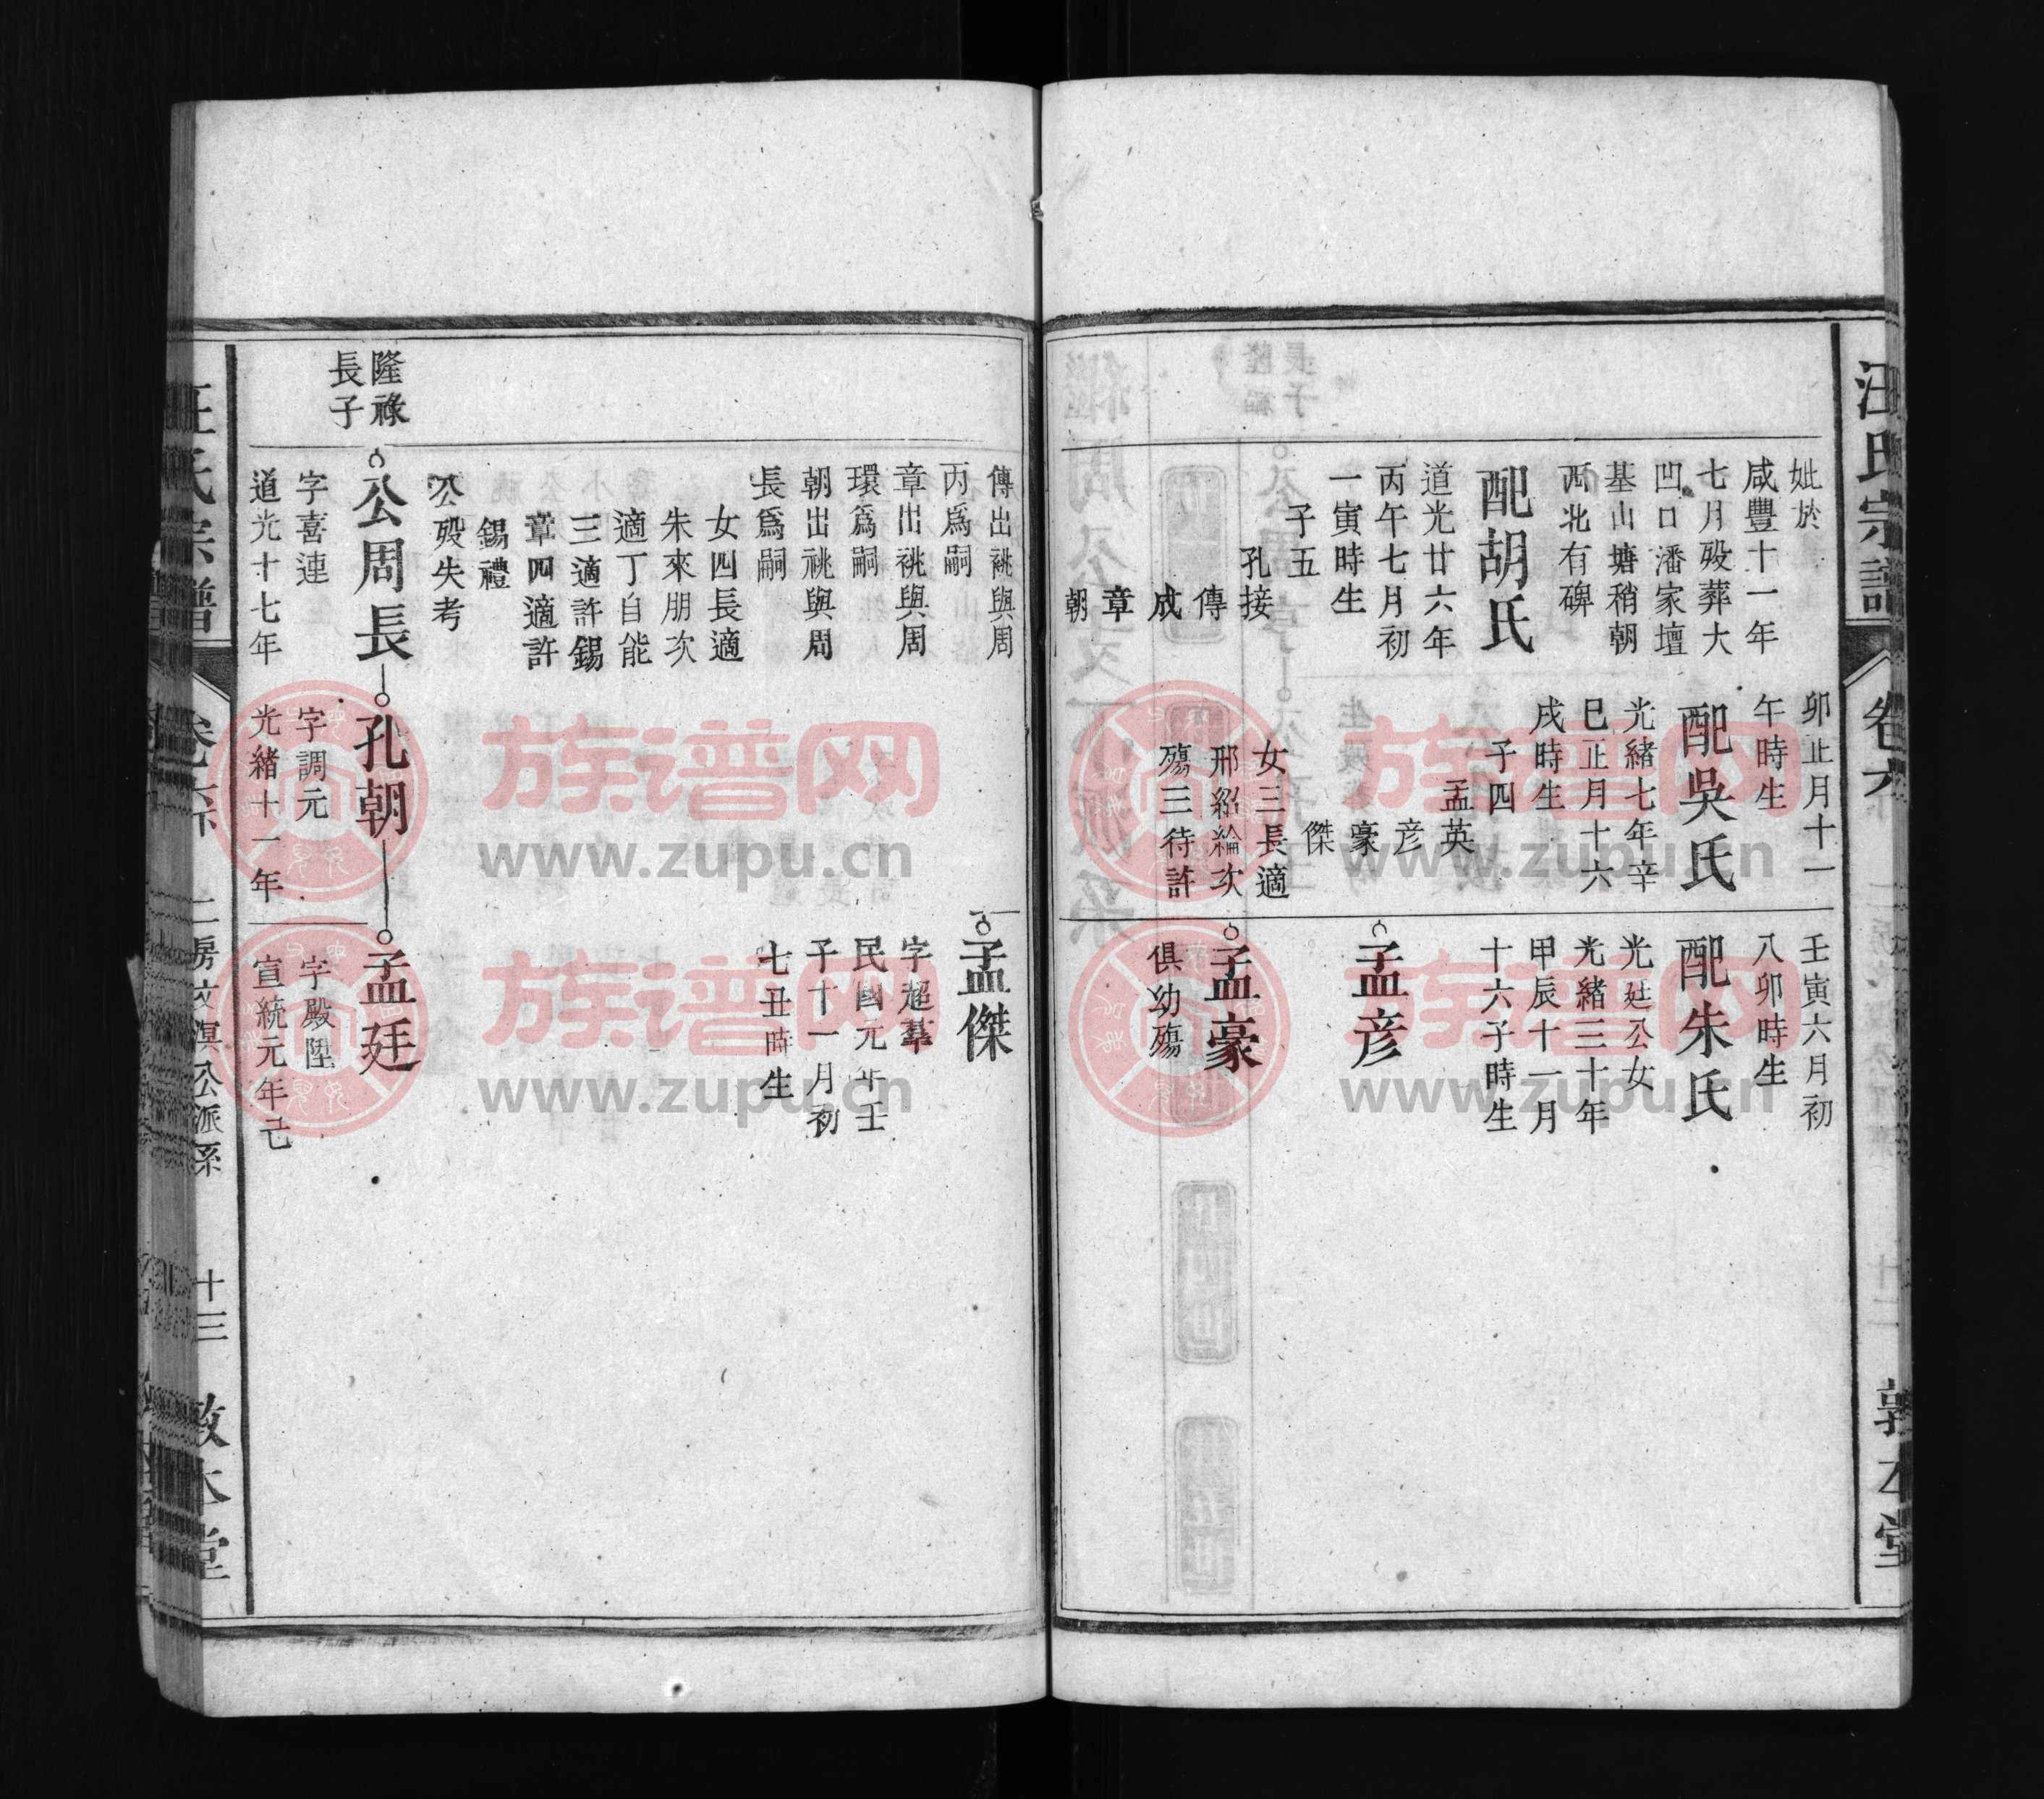 汪氏宗譜
卷六
敦本堂
妣於
咸豐十一年
七月歿葬大
凹口潘家壇
基山塘稍朝
西北有碑
配胡氏
道光廿六年
丙午七月初
一寅時生
子五
孔接
傳
成
章
朝
卯正月十一
午時生
配吳氏
光緒七年辛
巳正月十六
戌時生
子四
孟英
彦
豪
傑
女三長適
邢紹綸次
殤三待許
壬寅六月初
八卯時生
配朱氏
光廷公女
光緒三十年
甲辰十一月
十六子時生
孟彦
孟豪
俱幼殤
傳出祧與周
丙爲嗣
章出祧與周
環爲嗣
朝出祧與周
長爲嗣
女四長適
朱來朋次
適丁自能
三適許錫
章四適許
錫禮
公歿失考
隆祿
長子
公周長
字喜連
道光十七年
孔朝
字調元
光緒十一年
孟傑
字超羣
民國元年壬
子十一月初
七丑時生
孟廷
字殿陞
宣統元年己
汪氏宗譜
卷六
二房文溟公派系
十三
敦本堂
族谱网
www.zupu.cn
族谱网
www.zupu.cn
族谱网
www.zupu.cn
族谱网
www.zupu.cn